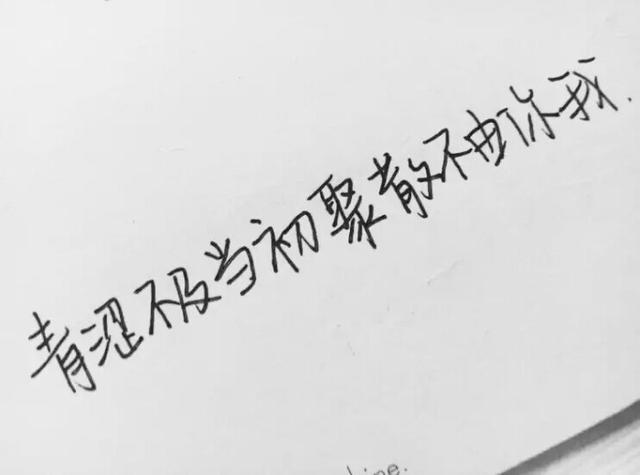 青涩不及当初聚散不由你我.